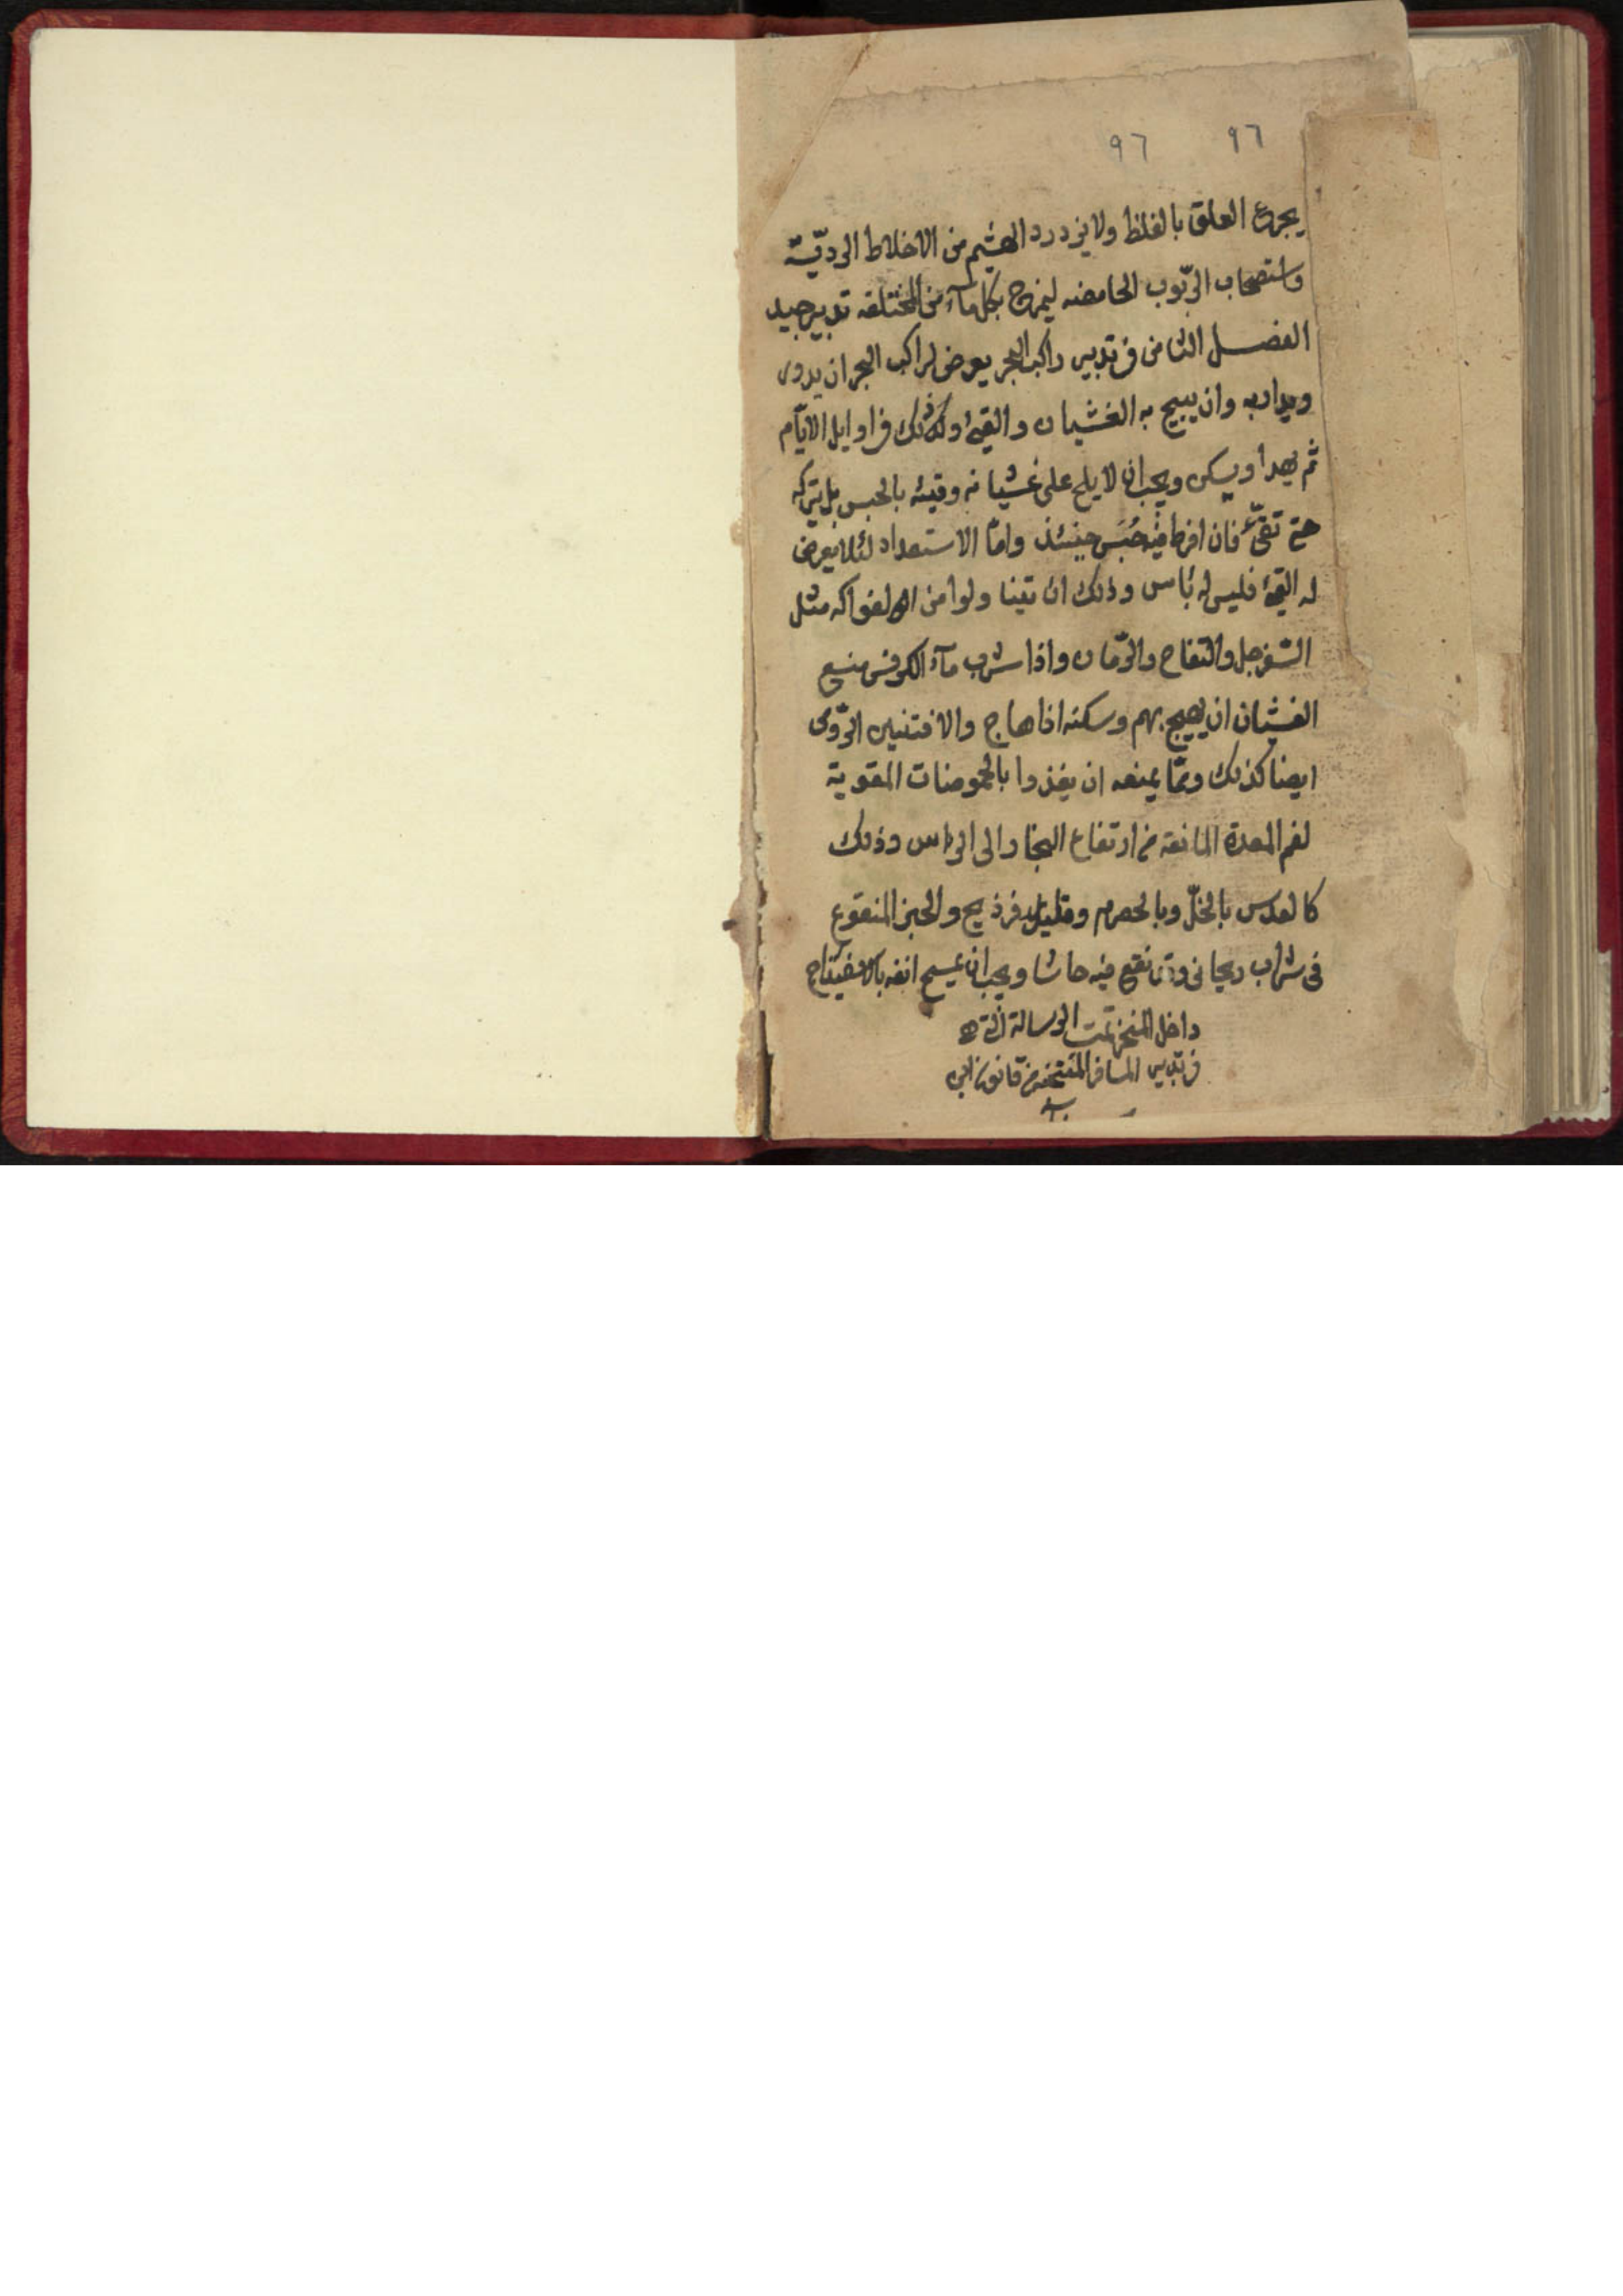 ٩٦ ٩٦
يجرع العلق بالغلظ ولا يزدرد الهشيم من الاخلاط الرديّة
واستصحاب الربّوب الحامضه ليمزج بكل مآء من المختلفه تدبير جيد
الفصل الثامن فى تدبير راكب البحر يعرض لراكب البحر ان يدور
ويدار به وان يهيج به الغشيان والقئ وذلك فى اوايل الايّام
ثم يهدأ ويسكن ويجب ان لا يلح على غشيانه وقيئه بالحبس بل يتركه
حتى تقئ فان افرط فيه حُبَس حينئذ وامّا الاستعداد لئلا يعرض
له القئ فليس له بأس وذلك ان يتناولوا من الفواكه مثل
السّفرجل والتفاح والرّمان واذا شرب مآء الكرفس منع
الغشيان ان يهيج بهم وسكنه اذا هاج والافتنين الرّومى
ايضا كذلك وممّا يمنعه ان يغذوا بالحموضات المقوية
لفم المعدة المانعة من ارتفاع البخار الى الراس وذلك
كالعدس بالخلّ وبالحصرم وقليل فوذيج والخبز المنقوع
فى شراب ريحانى وقد نقع فيه حاشا ويجب ان يمسح انفه بالاسفيداج
داخل المنخر تمت الرسالة
فى تدبير المسافر المنتخب من قانون ابى